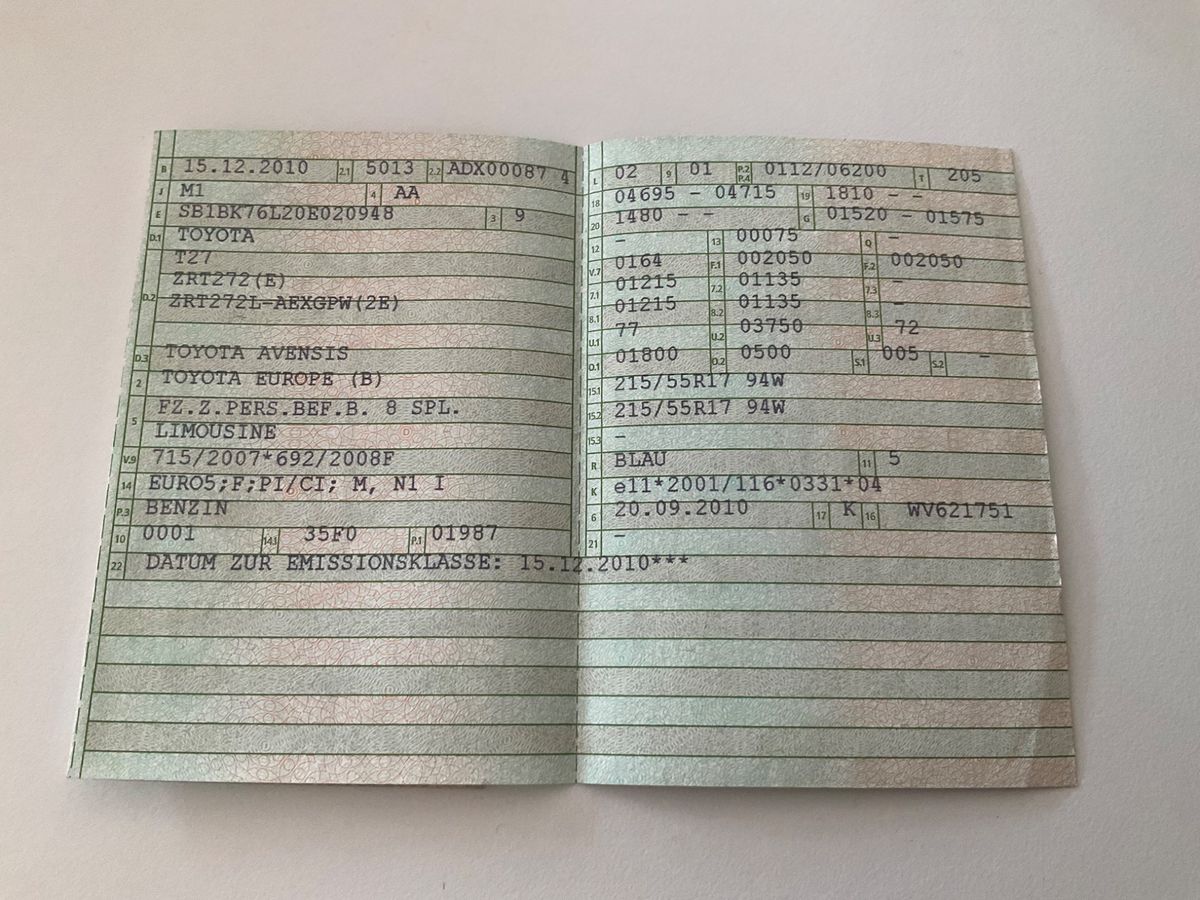 B 15.12.2010 2.1 5013 2.2 ADX00087 4
J M1 4 AA
E SB1BK76L20E020948 3 9
D.1 TOYOTA
T27
D.2 ZRT272(E)
ZRT272L-AEXGPW(2E)
D.3 TOYOTA AVENSIS
2 TOYOTA EUROPE (B)
5 FZ.Z.PERS.BEF.B. 8 SPL.
LIMOUSINE
V.9 715/2007*692/2008F
14 EURO5;F;PI/CI; M, N1 I
P.3 BENZIN
10 0001 14.1 35F0 P.1 01987
22 DATUM ZUR EMISSIONSKLASSE: 15.12.2010***
L 02 9 01 P.2 P.4 0112/06200 T 205
18 04695 - 04715 19 1810 - -
20 1480 - - G 01520 - 01575
12 - 13 00075 Q -
V.7 0164 F.1 002050 F.2 002050
7.1 01215 7.2 01135 7.3 -
8.1 01215 8.2 01135 8.3 -
U.1 77 U.2 03750 U.3 72
O.1 01800 O.2 0500 S.1 005 S.2 -
15.1 215/55R17 94W
15.2 215/55R17 94W
15.3 -
R BLAU 11 5
K e11*2001/116*0331*04
6 20.09.2010 17 K 16 WV621751
21 -